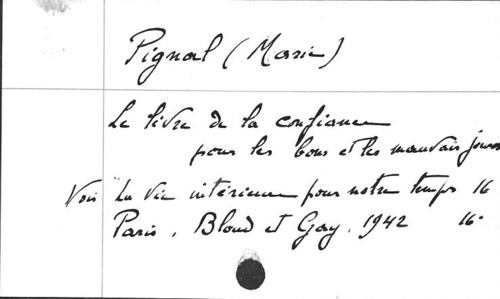 Pignal (Marie)
Le livre de la confiance
pour les bons et les mauvais jours
Voir La vie intérieure pour notre temps 16
Paris, Bloud et Gay, 1942 16°